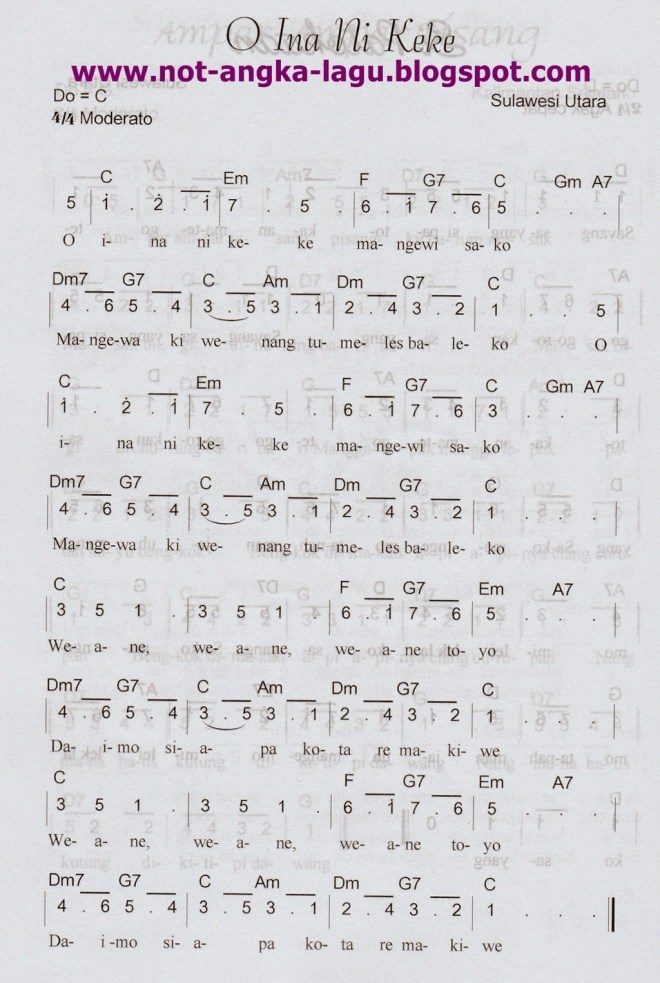 O Ina Ni Keke
www.not-angka-lagu.blogspot.com
Do = C
Sulawesi Utara
4/4 Moderato
C Em F G7 C Gm A7
5 | i . 2 . i | 7 . 5 . | 6 . i 7 . 6 | 5 . . . |
O i- na ni ke- ke ma- ngewi sa- ko
Dm7 G7 C Am Dm G7 C
4 . 6 5 . 4 | 3 . 5 3 . 1 | 2 . 4 3 . 2 | 1 . . 5 |
Ma- nge-wa ki we- nang tu- me- les ba- le- ko O
C Em F G7 C Gm A7
i . 2 . i | 7 . 5 . | 6 . i 7 . 6 | 3 . . . |
i- na ni ke- ke ma- ngewi sa- ko
Dm7 G7 C Am Dm G7 C
4 . 6 5 . 4 | 3 . 5 3 . 1 | 2 . 4 3 . 2 | 1 . . . |
Ma- nge-wa ki we- nang tu- me- les ba- le- ko
C F G7 Em A7
3 5 1 . | 3 5 1 . | 6 . i 7 . 6 | 5 . . . |
We- a- ne, we- a- ne, we- a- ne to- yo
Dm7 G7 C Am Dm G7 C
4 . 6 5 . 4 | 3 . 5 3 . 1 | 2 . 4 3 . 2 | 1 . . . |
Da- i-mo si- a- pa ko- ta re ma- ki- we
C F G7 Em A7
3 5 1 . | 3 5 1 . | 6 . i 7 . 6 | 5 . . . |
We- a- ne, we- a- ne, we- a- ne to- yo
Dm7 G7 C Am Dm G7 C
4 . 6 5 . 4 | 3 . 5 3 . 1 | 2 . 4 3 . 2 | 1 . . . ||
Da- i -mo si- a- pa ko- ta re ma- ki- we